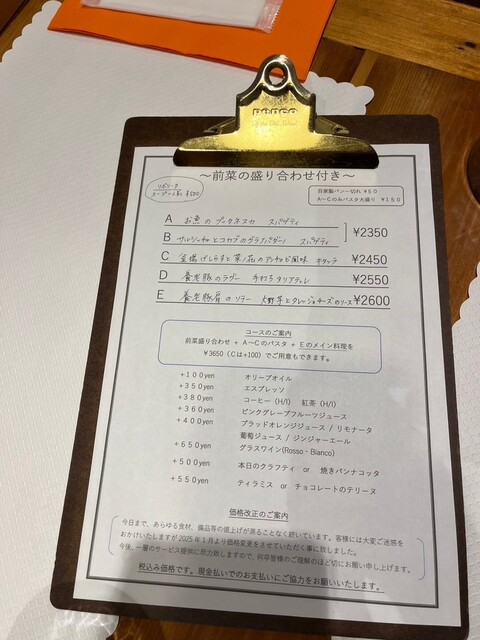 PENCO
～前菜の盛り合わせ付き～
リボリータ
スープ 小 ¥500
自家製パン一切れ ¥50
A～Cのみパスタ大盛り ¥150
A お魚のプッタネスカ スパゲティ
B サルシッチャとコカブのグラナパダーノ スパゲティ
¥2350
C 釜揚げしらすと菜ノ花のアンチョビ風味 キタッラ ¥2450
D 養老豚のラグー 手打ちタリアテッレ ¥2550
E 養老豚肩のソテー 大野芋とタレッジョチーズのソース ¥2600
コースのご案内
前菜盛り合わせ + A～Cのパスタ + Eのメイン料理を
¥3650（Cは+100）でご用意もできます。
+100yen オリーブオイル
+350yen エスプレッソ
+380yen コーヒー（H/I） 紅茶（H/I）
+360yen ピンクグレープフルーツジュース
+400yen ブラッドオレンジジュース / リモナータ
葡萄ジュース / ジンジャーエール
+650yen グラスワイン(Rosso・Bianco)
+500yen 本日のクラフティ or 焼きパンナコッタ
+550yen ティラミス or チョコレートのテリーヌ
価格改正のご案内
今日まで、あらゆる食材、備品等の値上げが滞ることなく続いています。客様には大変ご迷惑を
おかけいたしますが2025年1月より価格変更をさせていただく事に致しました。
今後、一層のサービス提供に尽力致しますので、何卒皆様のご理解のほど切にお願い申し上げます。
税込み価格です。現金払いでのお支払いにご協力をお願いいたします。